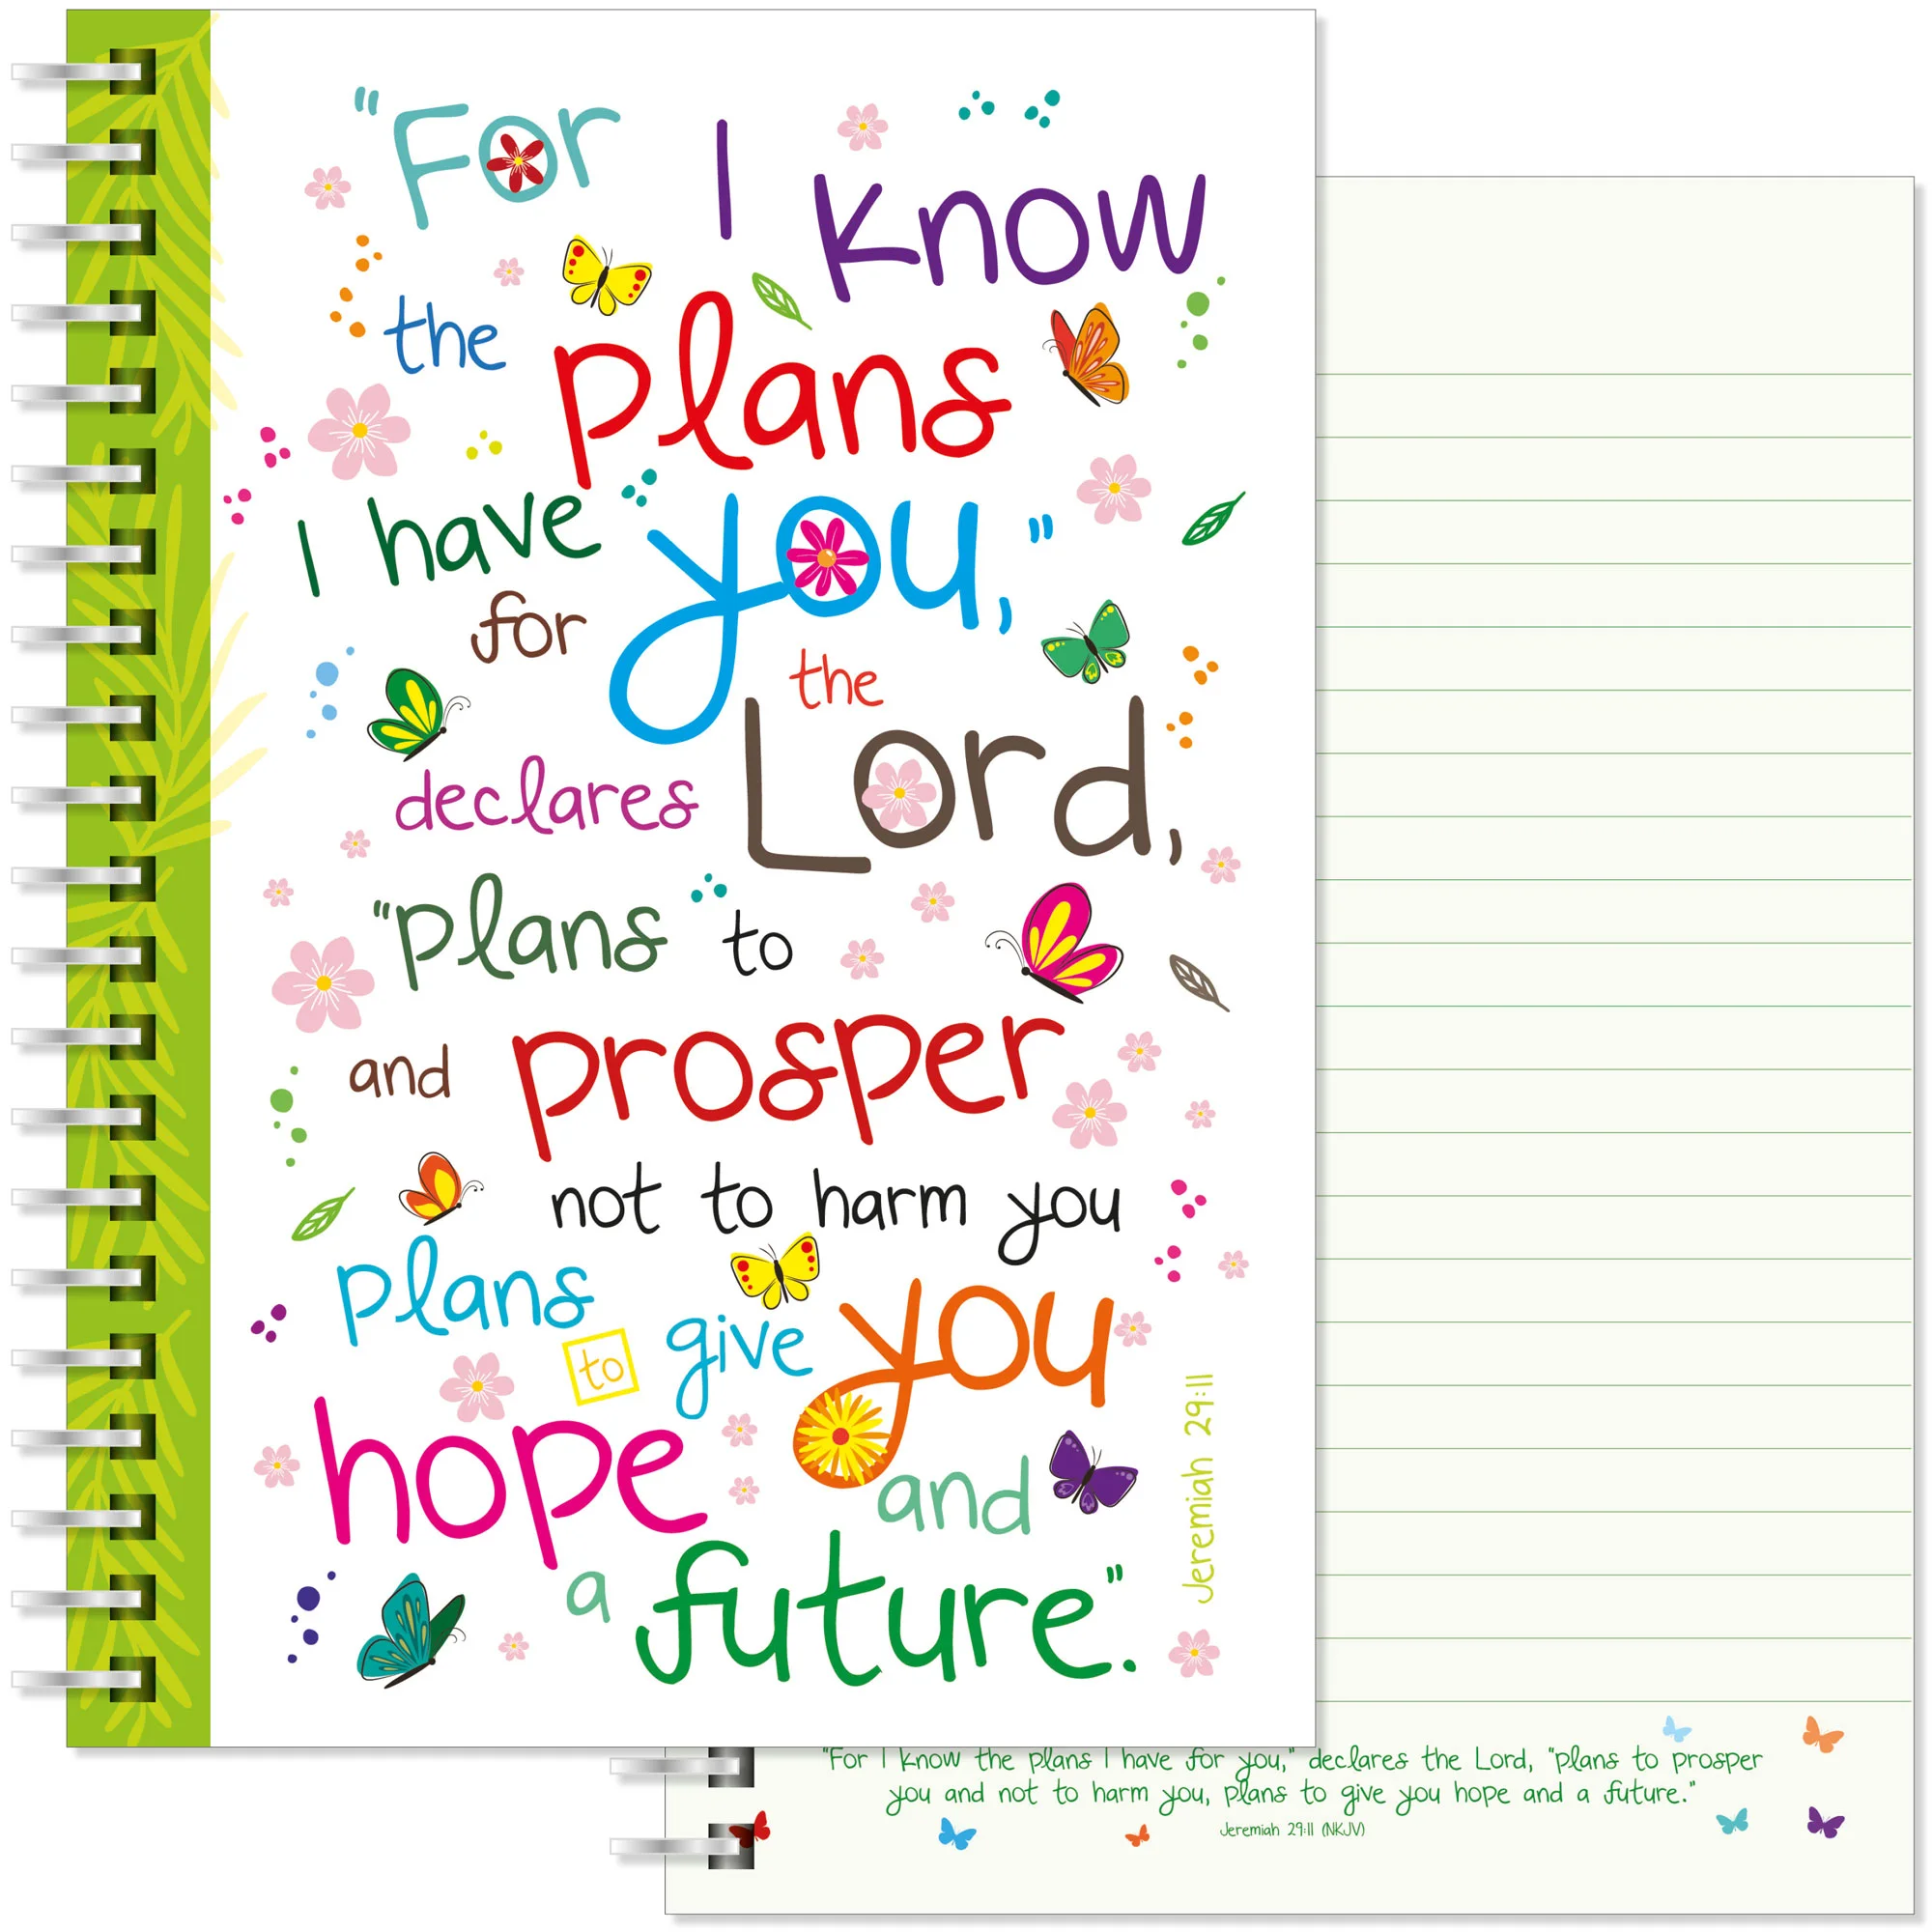 "For I know
the plans
I have you,"
for
the
declares Lord,
"plans to
and prosper
not to harm you
plans
to give you
hope and
a future".
Jeremiah 29:11
"For I know the plans I have for you," declares the Lord, "plans to prosper
you and not to harm you, plans to give you hope and a future."
Jeremiah 29:11 (NKJV)